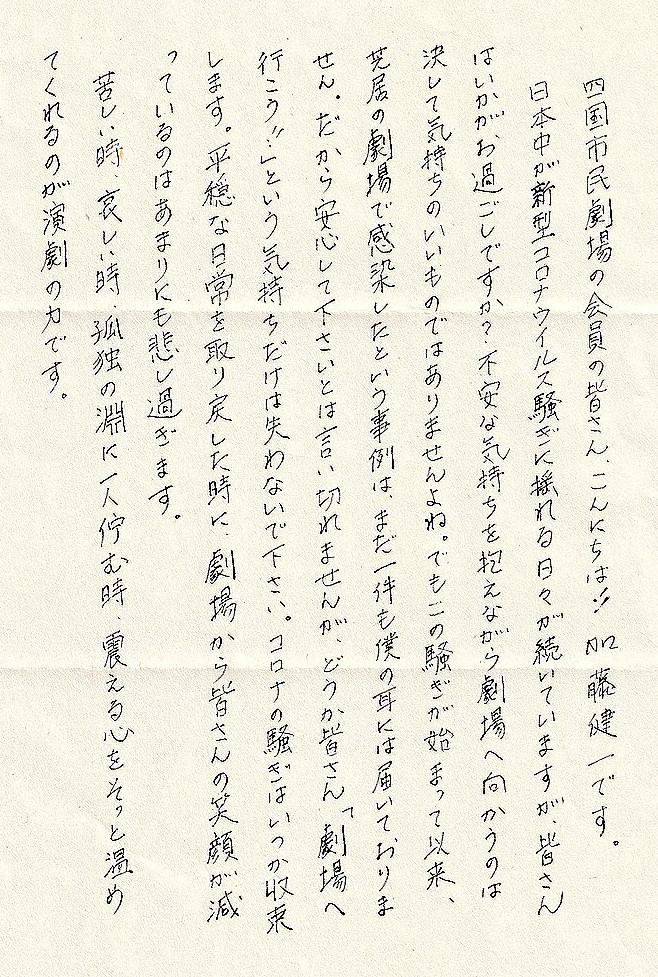 四国市民劇場の会員の皆さん、こんにちは!! 加藤健一です。
日本中が新型コロナウイルス騒ぎに揺れる日々が続いていますが、皆さん
はいかがお過ごしですか？不安な気持ちを抱えながら劇場へ向かうのは
決して気持ちのいいものではありませんよね。でもこの騒ぎが始まって以来、
芝居の劇場で感染したという事例は、まだ一件も僕の耳には届いておりま
せん。だから安心して下さいとは言い切れませんが、どうか皆さん「劇場へ
行こう!!」という気持ちだけは失わないで下さい。コロナの騒ぎはいつか収束
します。平穏な日常を取り戻した時に、劇場から皆さんの笑顔が減
っているのはあまりにも悲し過ぎます。
苦しい時、哀しい時、孤独の淵に一人佇む時、震える心をそっと温め
てくれるのが演劇の力です。